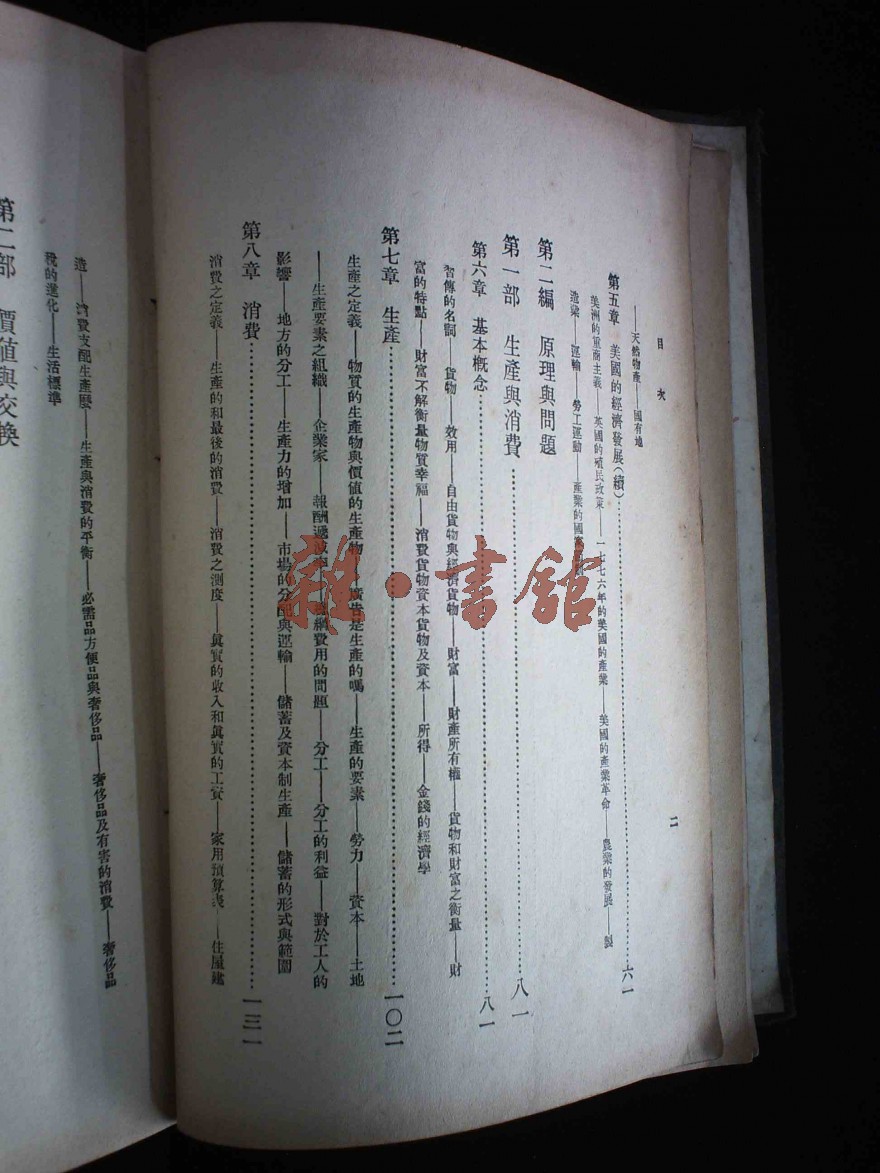 目次
二
——天然物產——國有地
第五章 美國的經濟發展(續)……六一
美洲的重商主義——英國的殖民政策——一七七六年的美國的產業——美國的產業革命——農業的發展——製
造業——運輸——勞工運動——產業的國
第二編 原理與問題
第一部 生產與消費……八一
第六章 基本概念……八一
習傳的名詞——貨物——效用——自由貨物與經濟貨物——財富——財產所有權——貨物和財富之衡量——財
富的特點——財富不解衡量物質幸福——消費貨物資本貨物及資本——所得——金錢的經濟學
第七章 生產……一〇二
生產之定義——物質的生產物與價值的生產物——廣告是生產的嗎——生產的要素——勞力——資本——土地
——生產要素之組織——企業家——報酬遞減 費用的問題——分工——分工的利益——對於工人的
影響——地方的分工——生產力的增加——市場的分配與運輸——儲蓄及資本制生產——儲蓄的形式與範圍
第八章 消費……一三一
消費之定義——生產的和最後的消費——消費之測度——眞實的收入和眞實的工資——家用預算表——住屋建
造——消費支配生產麼——生產與消費的平衡——必需品方便品與奢侈品——奢侈品及有害的消費——奢侈品
稅的進化——生活標準
第二部 價值與交換
雜·書館